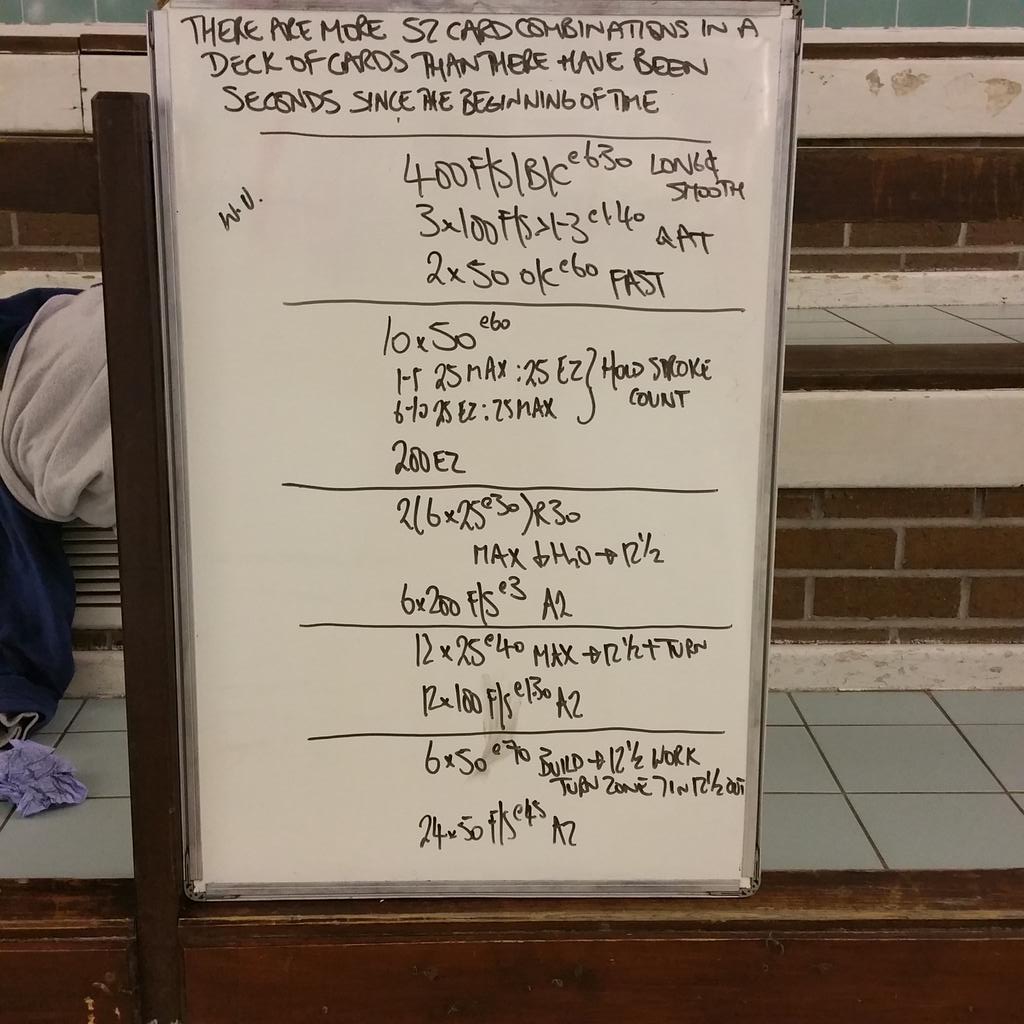 THERE ARE MORE 52 CARD COMBINATIONS IN A
DECK OF CARDS THAN THERE HAVE BEEN
SECONDS SINCE THE BEGINNING OF TIME
W.U.
400 F/S/B/C e630 LONG &
SMOOTH
3x100 F/S >1-3 e1.40
2x50 o/c e60 FAST
10x50 e60
1-5 25 MAX : 25 EZ } HOLD STROKE
6-10 25 EZ : 25 MAX COUNT
200 EZ
2(6x25 e30) R30
MAX → 12 1/2
6x200 F/S e3 A2
12x25 e40 MAX → 12 1/2 + TURN
12x100 F/S e130 A2
6x50 e70 BUILD → 12 1/2 WORK
TURN ZONE 7 IN 12 1/2 OUT
24x50 F/S e45 A2